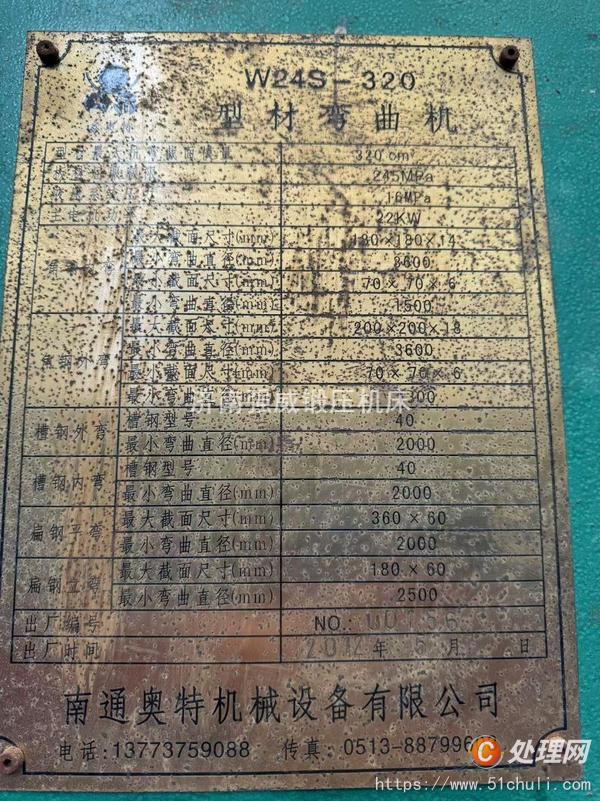 W24S-320
型材弯曲机
320cm³
245MPa
16MPa
22KW
最大截面尺寸(mm) 180×180×14
最小弯曲直径(mm) 2600
最小截面尺寸(mm) 70×70×6
最小弯曲直径(mm) 1500
角钢外弯 最大截面尺寸(mm) 200×200×18
最小弯曲直径(mm) 3600
最小截面尺寸(mm) 70×70×6
最小弯曲直径(mm)
槽钢外弯 槽钢型号 40
最小弯曲直径(mm) 2000
槽钢内弯 槽钢型号 40
最小弯曲直径(mm) 2000
扁钢平弯 最大截面尺寸(mm) 360×60
最小弯曲直径(mm) 2000
扁钢立弯 最大截面尺寸(mm) 180×60
最小弯曲直径(mm) 2500
出厂编号 NO.:
出厂时间 2012年 5月 日
南通奥特机械设备有限公司
电话:13773759088 传真:0513-88799
济南锤威锻压机床
C处理网
https://www.51chuli.com/